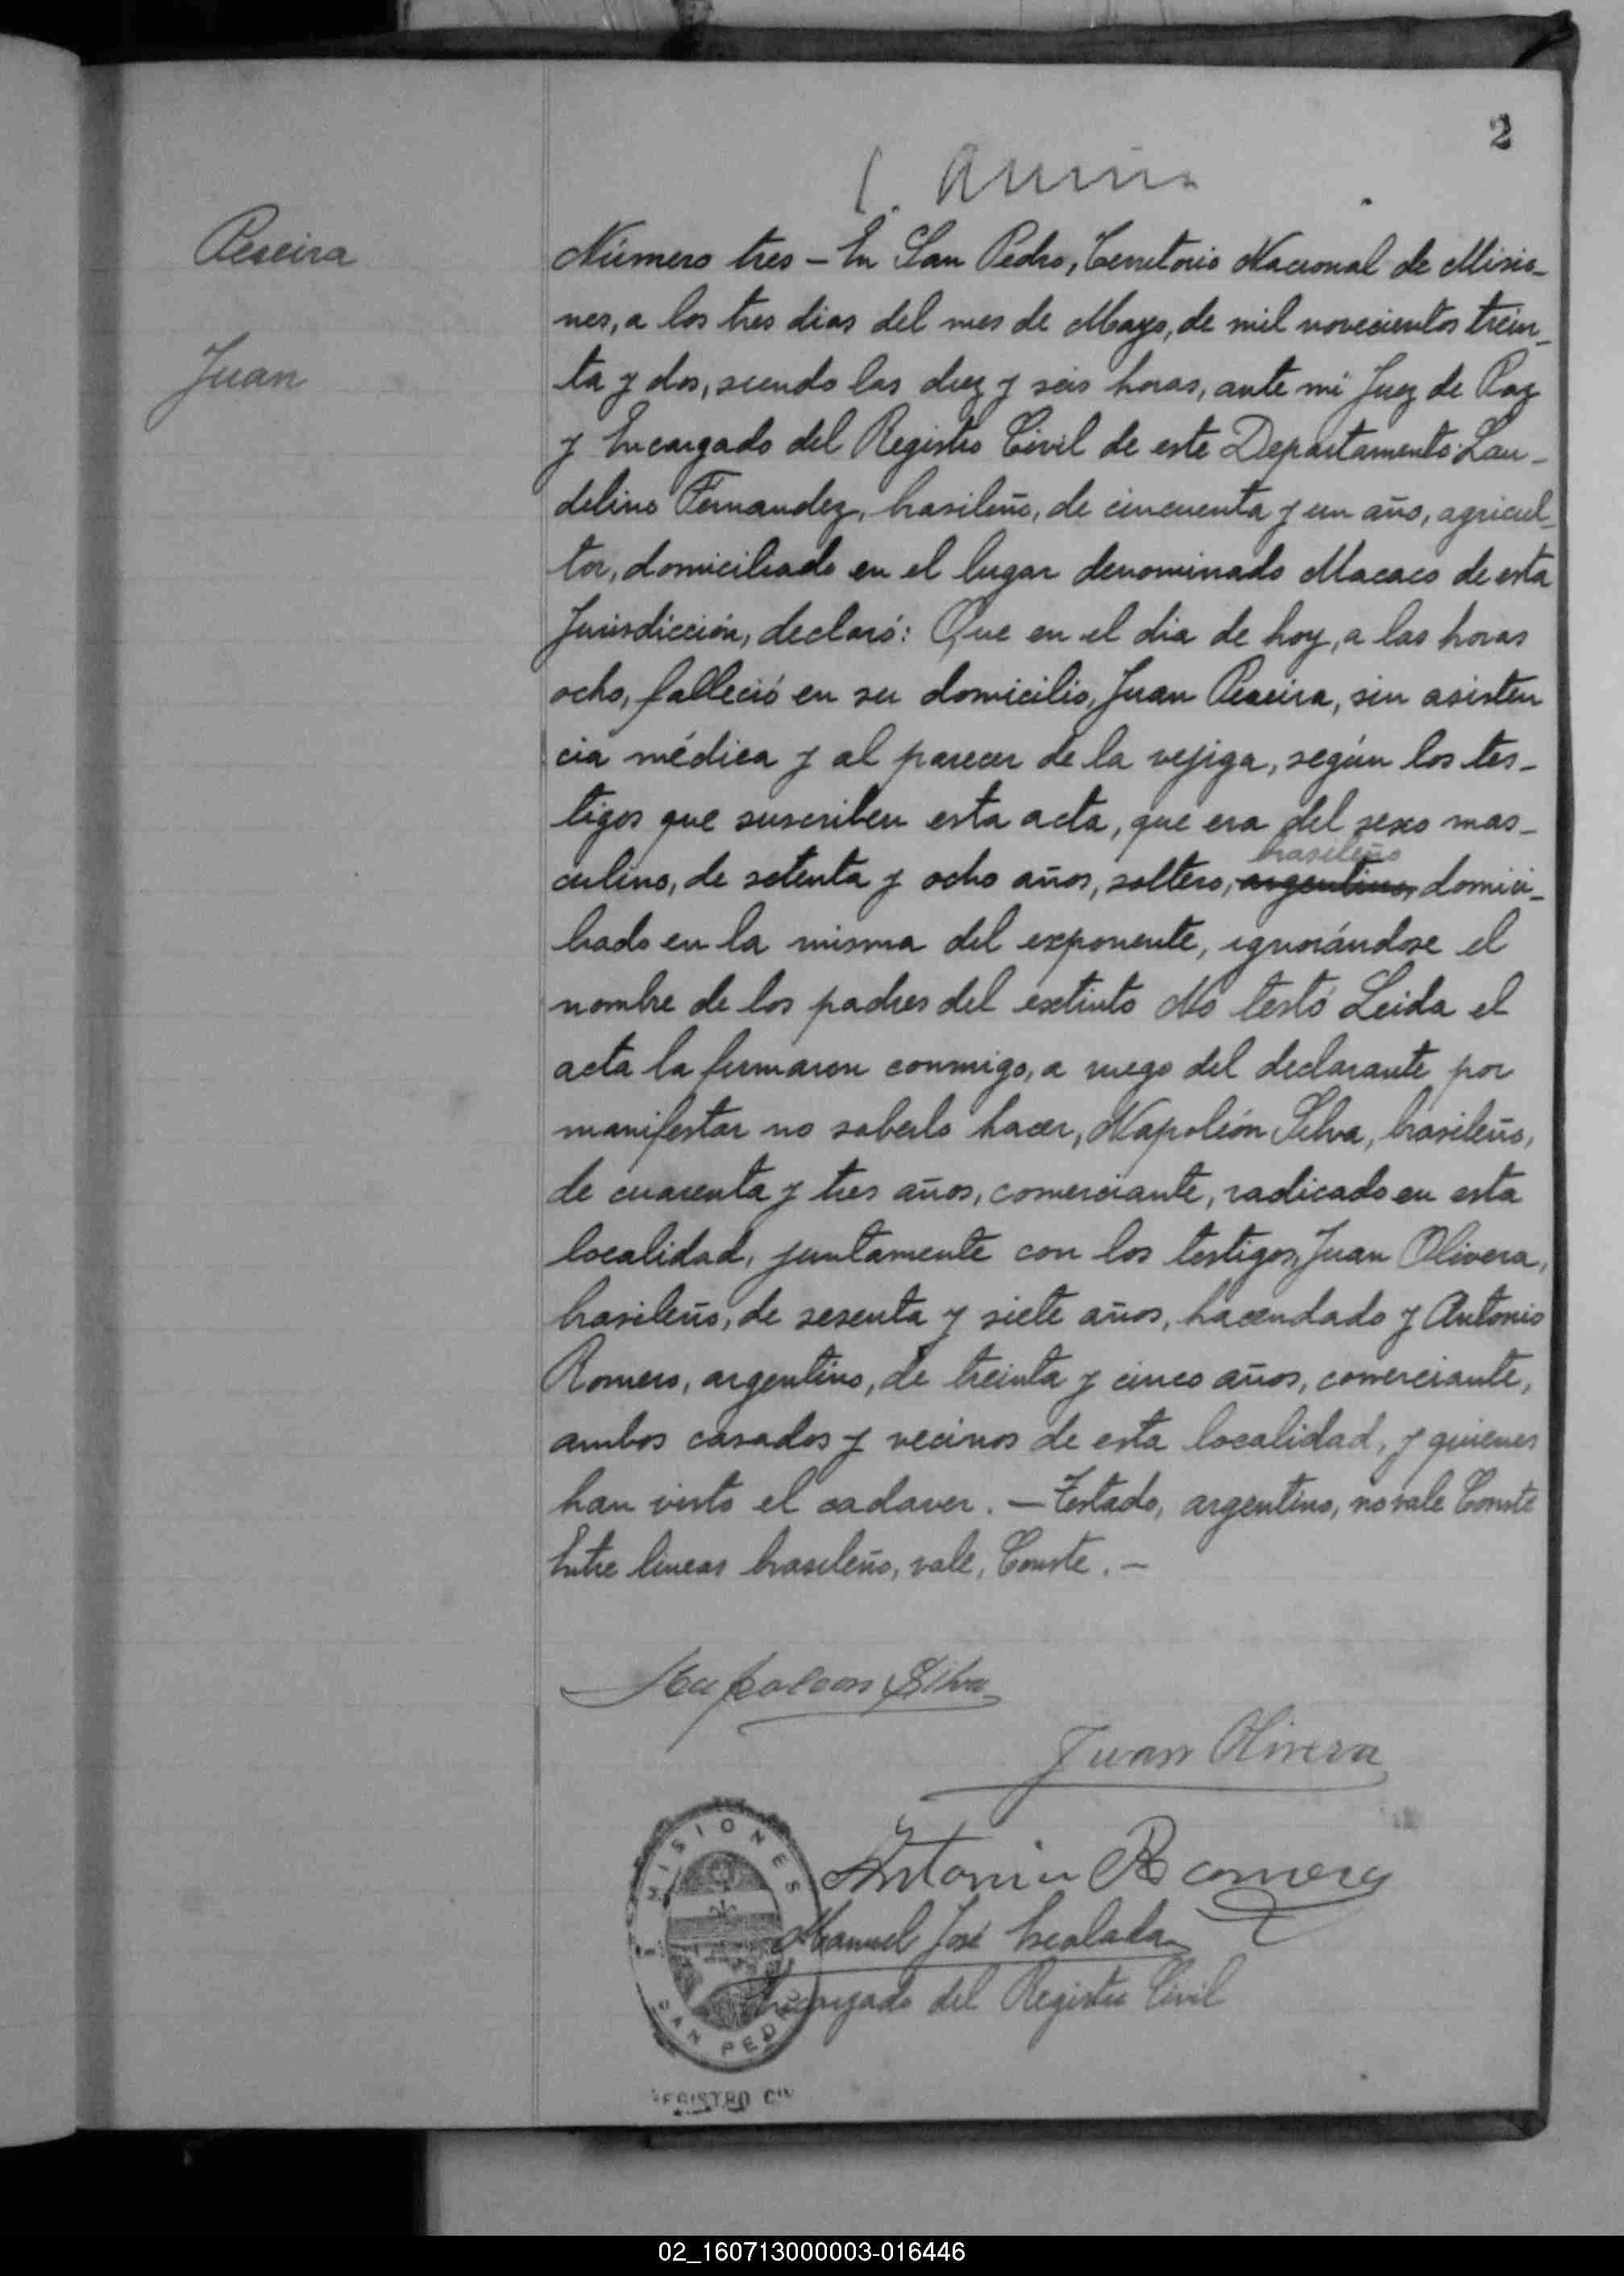 2
Pereira
Juan
Número tres – En San Pedro, Territorio Nacional de Misio-
nes, a los tres dias del mes de Mayo, de mil novecientos trein-
ta y dos, siendo las diez y seis horas, ante mi Juez de Paz
y Encargado del Registro Civil de este Departamento Lau-
delino Fernandez, brasileño, de cincuenta y un año, agricul-
tor, domiciliado en el lugar denominado Macaco de esta
Jurisdicción, declaró: Que en el dia de hoy, a las horas
ocho, falleció en su domicilio, Juan Pereira, sin asisten
cia médica y al parecer de la vejiga, según los tes-
tigos que suscriben esta acta, que era del sexo mas-
brasileño
culino, de setenta y ocho años, soltero, argentino, domici-
liado en la misma del exponente, ignorándose el
nombre de los padres del extinto No testó Leida el
acta la firmaron conmigo, a ruego del declarante por
manifestar no saberlo hacer, Napoleón Silva, brasileño,
de cuarenta y tres años, comerciante, radicado en esta
localidad, juntamente con los testigos, Juan Olivera,
brasileño, de sesenta y siete años, hacendado y Antonio
Romero, argentino, de treinta y cinco años, comerciante,
ambos casados y vecinos de esta localidad, y quienes
han visto el cadaver. – Testado, argentino, no vale Conste
Entre lineas brasileño, vale, Conste. –
Napoleon Silva
Juan Olivera
Antonio Romero
Manuel José Escalada
Encargado del Registro Civil
MISIONES
SAN PEDRO
REGISTRO CIV
02_160713000003-016446